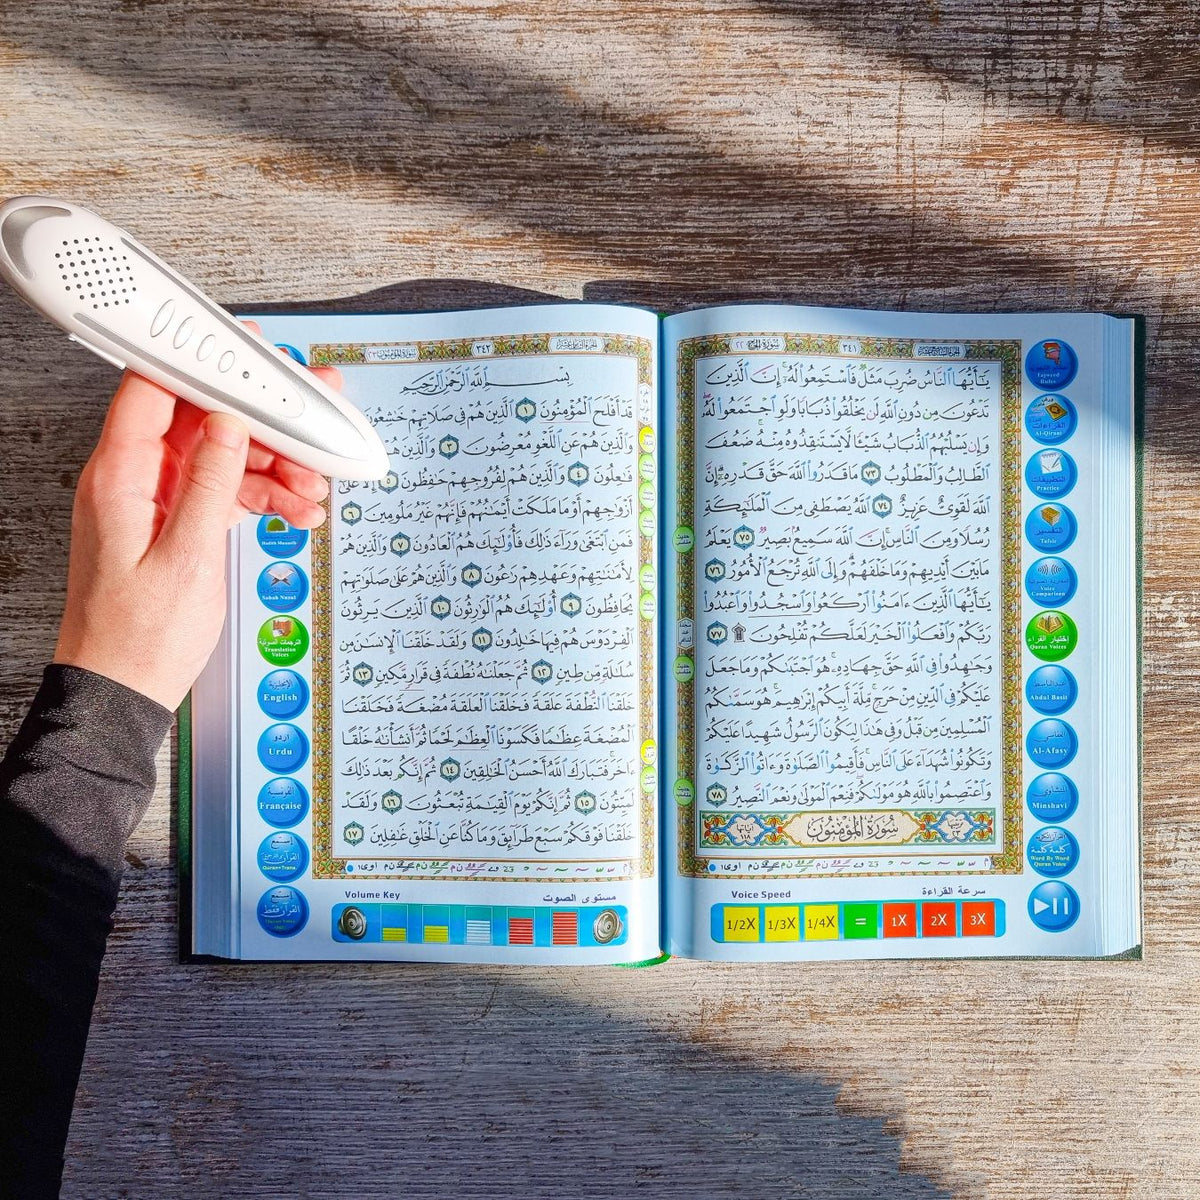 سورة الحج ٢٢
٣٤١
يَـٰٓأَيُّهَا ٱلنَّاسُ ضُرِبَ مَثَلٌ فَٱسْتَمِعُوا۟ لَهُۥٓ إِنَّ ٱلَّذِينَ
تَدْعُونَ مِن دُونِ ٱللَّهِ لَن يَخْلُقُوا۟ ذُبَابًا وَلَوِ ٱجْتَمَعُوا۟ لَهُۥ
وَإِن يَسْلُبْهُمُ ٱلذُّبَابُ شَيْـًٔا لَّا يَسْتَنقِذُوهُ مِنْهُ ضَعُفَ
ٱلطَّالِبُ وَٱلْمَطْلُوبُ ٧٣ مَا قَدَرُوا۟ ٱللَّهَ حَقَّ قَدْرِهِۦٓ إِنَّ
ٱللَّهَ لَقَوِىٌّ عَزِيزٌ ٧٤ ٱللَّهُ يَصْطَفِى مِنَ ٱلْمَلَـٰٓئِكَةِ
رُسُلًا وَمِنَ ٱلنَّاسِ إِنَّ ٱللَّهَ سَمِيعٌۢ بَصِيرٌ ٧٥ يَعْلَمُ
مَا بَيْنَ أَيْدِيهِمْ وَمَا خَلْفَهُمْ وَإِلَى ٱللَّهِ تُرْجَعُ ٱلْأُمُورُ ٧٦
يَـٰٓأَيُّهَا ٱلَّذِينَ ءَامَنُوا۟ ٱرْكَعُوا۟ وَٱسْجُدُوا۟ وَٱعْبُدُوا۟
رَبَّكُمْ وَٱفْعَلُوا۟ ٱلْخَيْرَ لَعَلَّكُمْ تُفْلِحُونَ ۩ ٧٧
وَجَـٰهِدُوا۟ فِى ٱللَّهِ حَقَّ جِهَادِهِۦ هُوَ ٱجْتَبَىٰكُمْ وَمَا جَعَلَ
عَلَيْكُمْ فِى ٱلدِّينِ مِنْ حَرَجٍ مِّلَّةَ أَبِيكُمْ إِبْرَٰهِيمَ هُوَ سَمَّىٰكُمُ
ٱلْمُسْلِمِينَ مِن قَبْلُ وَفِى هَـٰذَا لِيَكُونَ ٱلرَّسُولُ شَهِيدًا عَلَيْكُمْ
وَتَكُونُوا۟ شُهَدَآءَ عَلَى ٱلنَّاسِ فَأَقِيمُوا۟ ٱلصَّلَوٰةَ وَءَاتُوا۟ ٱلزَّكَوٰةَ
وَٱعْتَصِمُوا۟ بِٱللَّهِ هُوَ مَوْلَىٰكُمْ فَنِعْمَ ٱلْمَوْلَىٰ وَنِعْمَ ٱلنَّصِيرُ ٧٨
سُورَةُ المُؤْمِنُونَ
آياتها ١١٨
Voice Speed سرعة القراءة
1/2X 1/3X 1/4X = 1X 2X 3X
Tajweed Rules
Al-Qiraat
Practice
Tafsir
Voice Comparison
إختيار القراء
Quran Voices
Abdul Basit
Al-Afasy
Minshavi
كلمة كلمة
Word By Word Quran Voice
سورة المؤمنون ٢٣
٣٤٢
بِسْمِ ٱللَّهِ ٱلرَّحْمَـٰنِ ٱلرَّحِيمِ
قَدْ أَفْلَحَ ٱلْمُؤْمِنُونَ ١ ٱلَّذِينَ هُمْ فِى صَلَاتِهِمْ خَـٰشِعُونَ
وَٱلَّذِينَ هُمْ عَنِ ٱللَّغْوِ مُعْرِضُونَ ٣ وَٱلَّذِينَ هُمْ
فَـٰعِلُونَ ٤ وَٱلَّذِينَ هُمْ لِفُرُوجِهِمْ حَـٰفِظُونَ ٥ إِلَّا عَلَىٰٓ
أَزْوَٰجِهِمْ أَوْ مَا مَلَكَتْ أَيْمَـٰنُهُمْ فَإِنَّهُمْ غَيْرُ مَلُومِينَ ٦
فَمَنِ ٱبْتَغَىٰ وَرَآءَ ذَٰلِكَ فَأُو۟لَـٰٓئِكَ هُمُ ٱلْعَادُونَ ٧ وَٱلَّذِينَ هُمْ
لِأَمَـٰنَـٰتِهِمْ وَعَهْدِهِمْ رَٰعُونَ ٨ وَٱلَّذِينَ هُمْ عَلَىٰ صَلَوَٰتِهِمْ
يُحَافِظُونَ ٩ أُو۟لَـٰٓئِكَ هُمُ ٱلْوَٰرِثُونَ ١٠ ٱلَّذِينَ يَرِثُونَ
ٱلْفِرْدَوْسَ هُمْ فِيهَا خَـٰلِدُونَ ١١ وَلَقَدْ خَلَقْنَا ٱلْإِنسَـٰنَ مِن
سُلَـٰلَةٍ مِّن طِينٍ ١٢ ثُمَّ جَعَلْنَـٰهُ نُطْفَةً فِى قَرَارٍ مَّكِينٍ ١٣ ثُمَّ
خَلَقْنَا ٱلنُّطْفَةَ عَلَقَةً فَخَلَقْنَا ٱلْعَلَقَةَ مُضْغَةً فَخَلَقْنَا
ٱلْمُضْغَةَ عِظَـٰمًا فَكَسَوْنَا ٱلْعِظَـٰمَ لَحْمًا ثُمَّ أَنشَأْنَـٰهُ خَلْقًا
ءَاخَرَ فَتَبَارَكَ ٱللَّهُ أَحْسَنُ ٱلْخَـٰلِقِينَ ١٤ ثُمَّ إِنَّكُم بَعْدَ ذَٰلِكَ
لَمَيِّتُونَ ١٥ ثُمَّ إِنَّكُمْ يَوْمَ ٱلْقِيَـٰمَةِ تُبْعَثُونَ ١٦ وَلَقَدْ
خَلَقْنَا فَوْقَكُمْ سَبْعَ طَرَآئِقَ وَمَا كُنَّا عَنِ ٱلْخَلْقِ غَـٰفِلِينَ ١٧
Volume Key مستوى الصوت
Sabab Nuzul
الترجمات الصوتية
Translation Voices
English
اردو
Urdu
الفرنسية
Française
Quran+Trans.